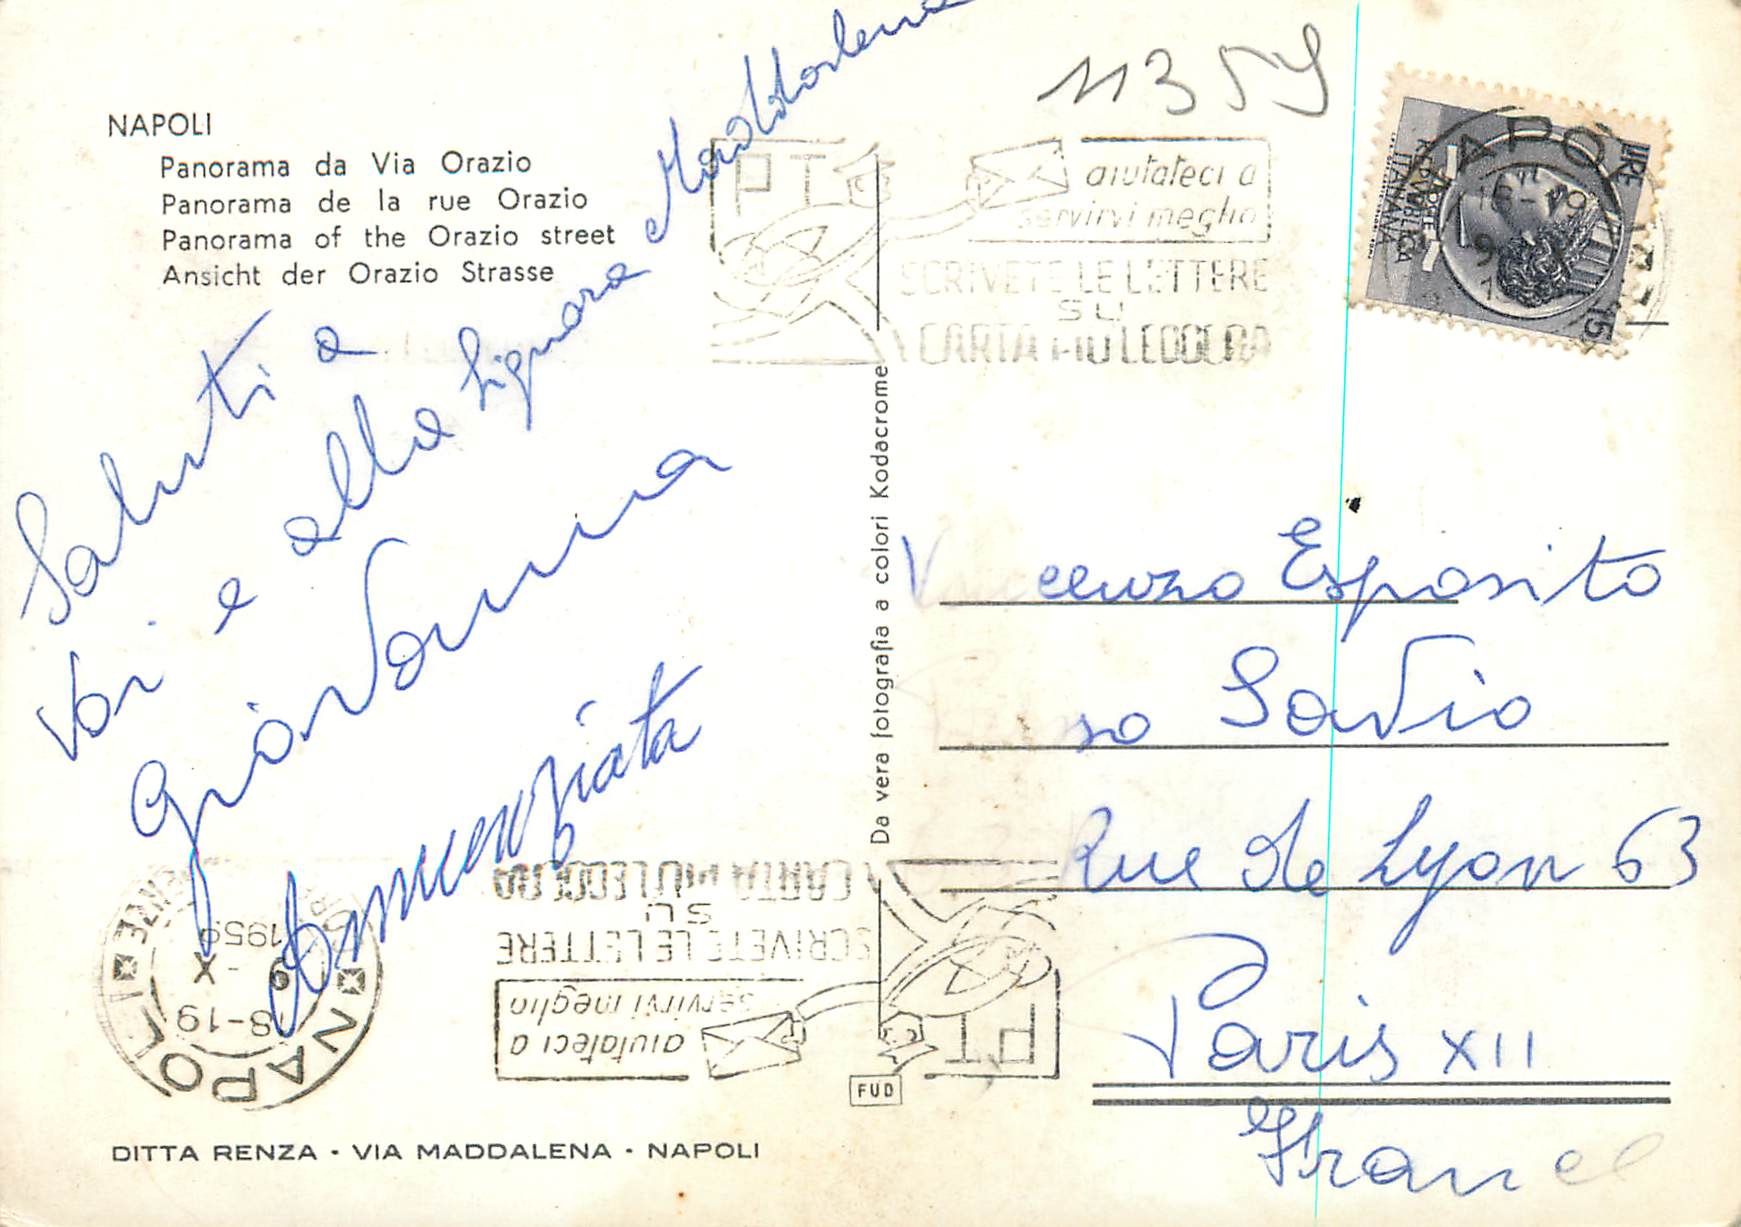 11359
NAPOLI
Panorama da Via Orazio
Panorama de la rue Orazio
Panorama of the Orazio street
Ansicht der Orazio Strasse
Saluti a
voi e alla Signora Maddalena
Giovanna
Annunziata
PT
aiutateci a
servirvi meglio
SCRIVETE LE LETTERE
SU
CARTA PIÙ LEGGERA
LIRE
REPVBBLICA
ITALIANA
15
Da vera fotografia a colori Kodacrome
Vincenzo Esposito
so Savio
Rue de Lyon 63
Paris XII
France
NAPOLI
18-19
9 - X
1959
PT
aiutateci a
servirvi meglio
SCRIVETE LE LETTERE
SU
CARTA PIÙ LEGGERA
FUD
DITTA RENZA · VIA MADDALENA · NAPOLI